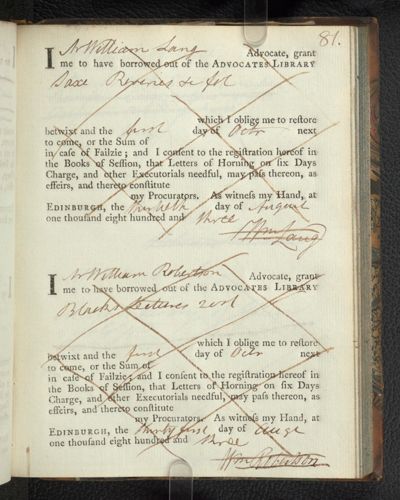 81.
I Mr William Lang Advocate, grant
me to have borrowed out of the ADVOCATES LIBRARY
Saxe Reveries fol
which I oblige me to restore
betwixt and the first day of Octr next
to come, or the Sum of
in case of Failzie; and I consent to the registration hereof in
the Books of Session, that Letters of Horning on six Days
Charge, and other Executorials needful, may pass thereon, as
effeirs, and thereto constitute
my Procurators. As witness my Hand, at
EDINBURGH, the day of August
one thousand eight hundred and three
Wm Lang
I Mr William Robertson Advocate, grant
me to have borrowed out of the ADVOCATES LIBRARY
Blacks Lectures 2 vol
which I oblige me to restore
betwixt and the first day of Octr next
to come, or the Sum of
in case of Failzie; and I consent to the registration hereof in
the Books of Session, that Letters of Horning on six Days
Charge, and other Executorials needful, may pass thereon, as
effeirs, and thereto constitute
my Procurators. As witness my Hand, at
EDINBURGH, the thirty first day of Augt
one thousand eight hundred and three
Wm Robertson